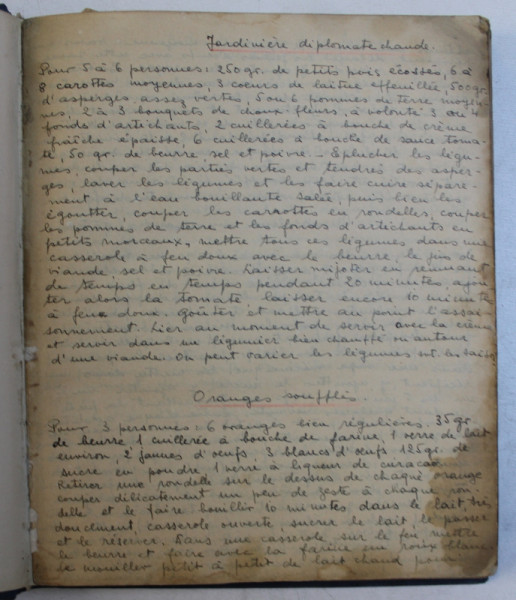 Jardinière diplomate chaude.
Pour 5 à 6 personnes: 250 gr. de petits pois écossés, 6 à
8 carottes moyennes, 3 coeurs de laitue effeuillée, 500 gr
d'asperges assez vertes, 5 ou 6 pommes de terre moyen-
nes, 2 à 3 bouquets de choux fleurs, à volonté 3 ou 4
fonds d'artichauts, 2 cuillerées à bouche de crème
fraîche épaisse, 6 cuillerées à bouche de sauce toma-
te, 50 gr. de beurre, sel et poivre. - Eplucher les légu-
mes, couper les parties vertes et tendres des asper-
ges, laver les légumes et les faire cuire séparé-
ment à l'eau bouillante salée, puis bien les
égoutter, couper les carrottes en rondelles, couper
les pommes de terre et les fonds d'artichauts en
petits morceaux, mettre tous ces légumes dans une
casserole à feu doux avec le beurre, le jus de
viande, sel et poivre. Laisser mijoter en remuant
de temps en temps pendant 20 minutes, ajou
ter alors la tomate, laisser encore 10 minutes
à feux doux. Goûter et mettre au point l'assai-
sonnement. Lier au moment de servir avec la crème
et servir dans un légumier bien chauffé ou autour
d'une viande. On peut varier les légumes
Oranges soufflés.
Pour 3 personnes: 6 oranges bien régulières. 35 gr.
de beurre 1 cuillerée à bouche de farine, 1 verre de lait
environ, 2 jaunes d'oeufs, 3 blancs d'oeufs 125 gr. de
sucre en poudre, 1 verre à liqueur de curaçao.
Retirer une rondelle sur le dessus de chaque orange
couper délicatement un peu de zeste à chaque ron-
delle et le faire bouillir 10 minutes dans le lait très
doucement, casserole ouverte, sucrer le lait, le passer
et le réserver. Dans une casserole sur le feu mettre
le beurre et faire avec la farine un roux blanc
le mouiller petit à petit de lait chaud pour